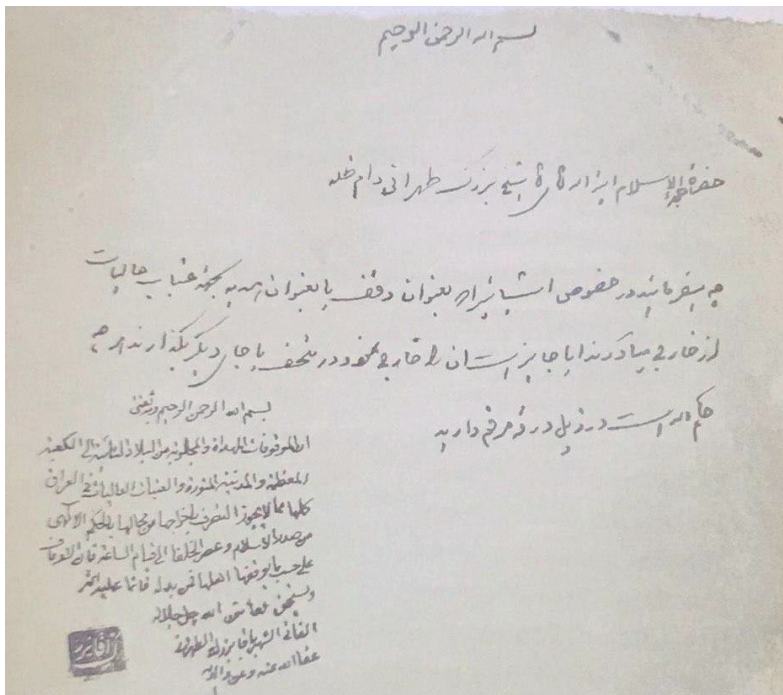 بسم الله الرحمن الرحیم
حضرة حجة الاسلام آیة الله آقای آقا شیخ بزرگ طهرانی دام ظله
چه میفرمایند در خصوص اشیائیکه بعنوان وقف یا بعنوان هدیه بجهة عتبات عالیات
از خارج میآورند آیا جایز است آن را خارج نمود در متحف یا جای دیگر بگذارند هر چه
حکم الله است در ذیل ورقه مرقوم دارید
بسم الله الرحمن الرحیم وبه ثقتی
ان الموقوفات المهداة والمجلوبة من البلاد النائیة الی الکعبة
المعظمة والمدینة المنورة والعتبات العالیات فی العراق
کلها مما لا یجوز التصرف باخراجها من محالها بالحکم الالهی
من صدر الاسلام وعصر الخلفا الی قیام الساعة فان الاوقاف
علی حسب ما یوقفها اهلها فمن بدله فانما علیه اثمه
ویستحق من الله جل جلاله
الفانی الشهیر بآقا بزرک الطهرانی
عفا الله عنه وعن والدیه
آقا بزرک